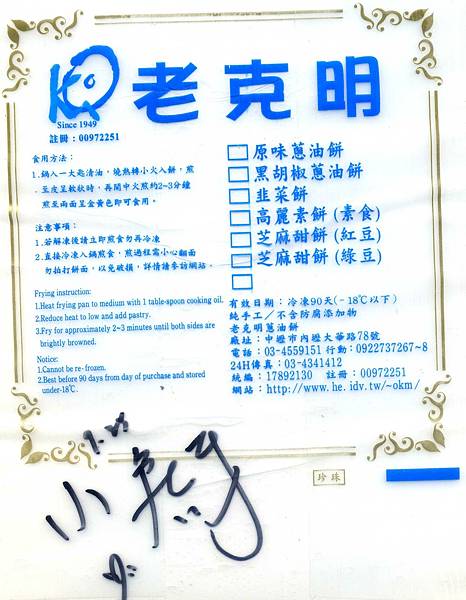 老克明
Since 1949
註冊：00972251
食用方法：
1.鍋入一大匙清油，燒熱轉小火入餅，煎
至皮呈軟狀時，再開中火煎約2~3分鐘
煎至兩面呈金黃色即可食用。
注意事項：
1.若解凍後請立即煎食勿再冷凍
2.直接冷凍入鍋煎食，煎過程需小心翻面
勿拍打餅面，以免破損，詳情請參訪網站。
Frying instruction:
1.Heat frying pan to medium with 1 table-spoon cooking oil.
2.Reduce heat to low and add pastry.
3.Fry for approximately 2~3 minutes until both sides are
brightly browned.
Notice:
1.Cannot be re- frozen.
2.Best before 90 days from day of purchase and stored
under-18℃.
原味蔥油餅
黑胡椒蔥油餅
韭菜餅
高麗素餅 (素食)
芝麻甜餅 (紅豆)
芝麻甜餅 (綠豆)
有效日期：冷凍90天(-18℃以下)
純手工／不含防腐添加物
老克明蔥油餅
廠址：中壢市內壢大華路78號
電話：03-4559151 行動：0922737267~8
24H傳真：03-4341412
統編：17892130 註冊：00972251
網站：http://www.he.idv.tw/~okm/
珍珠